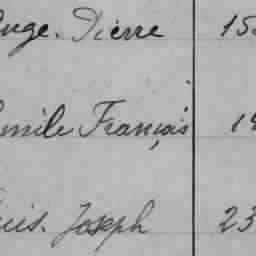 Pierre 15
Emile François 1
Louis. Joseph 23